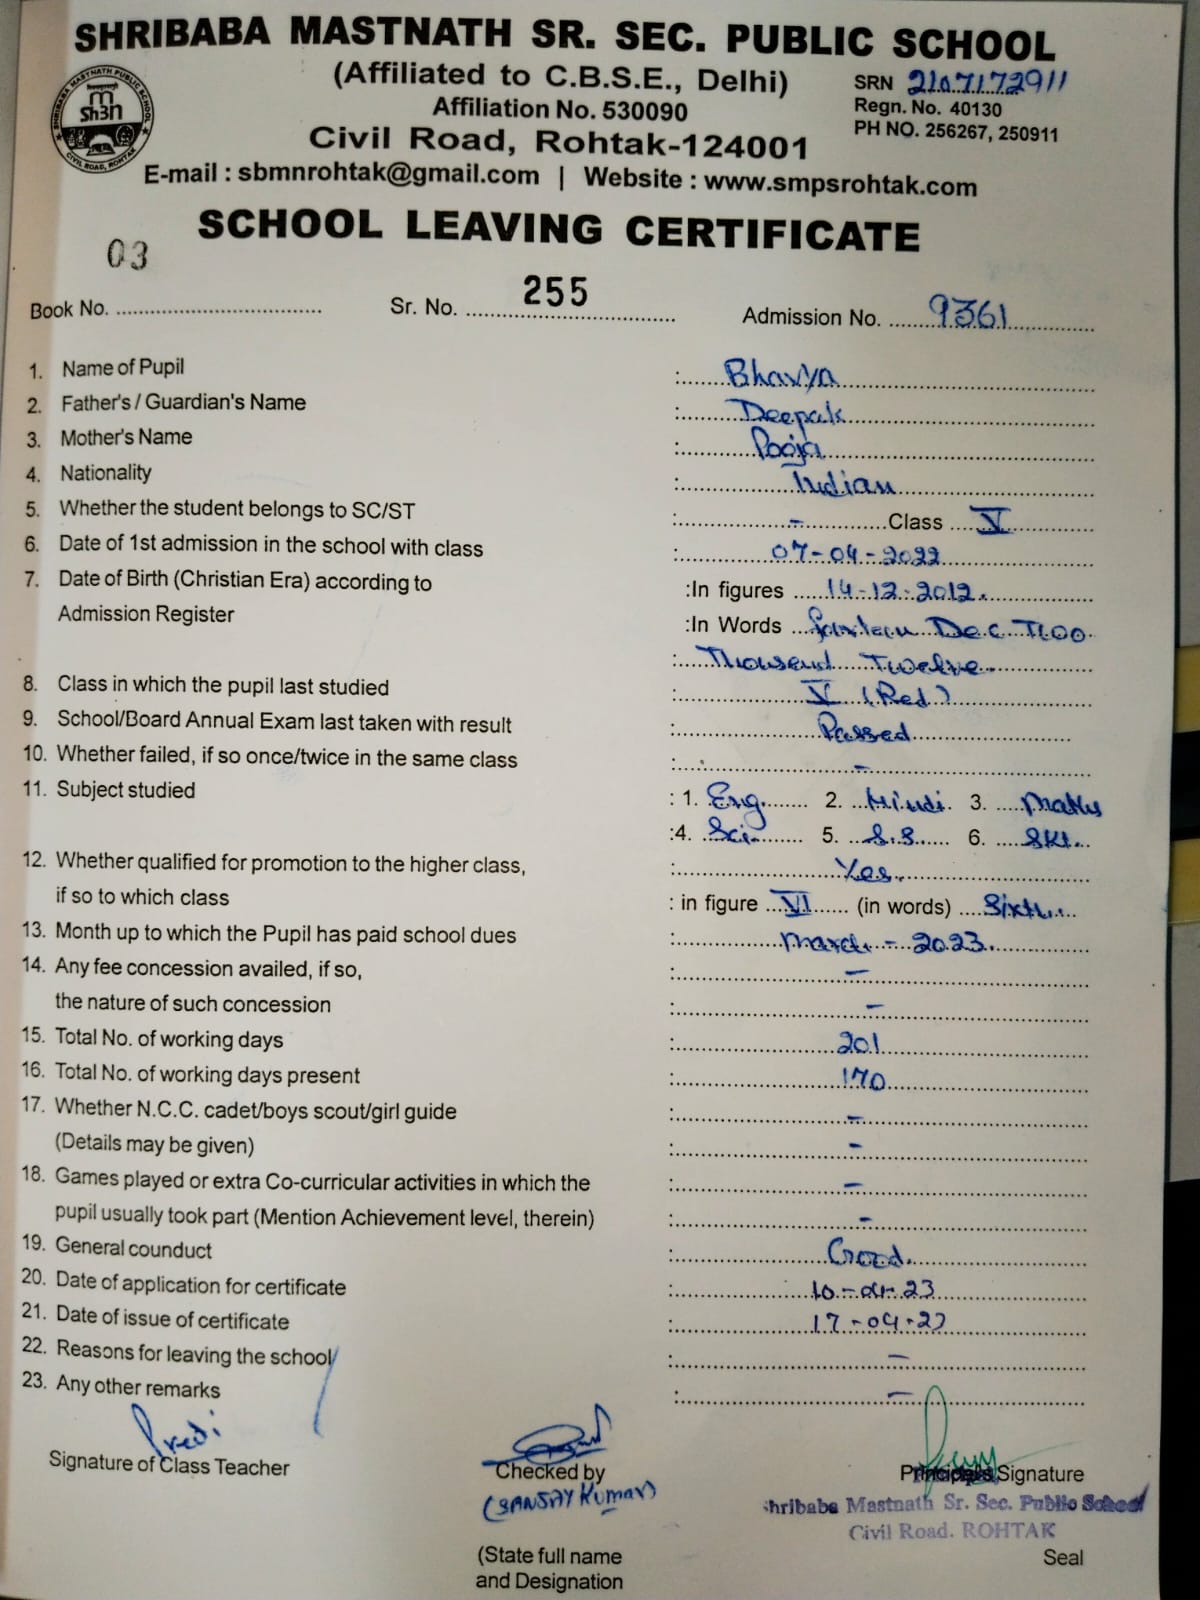 SHRIBABA MASTNATH SR. SEC. PUBLIC SCHOOL
(Affiliated to C.B.S.E., Delhi)
SRN 2107172911
Affiliation No. 530090
Regn. No. 40130
Civil Road, Rohtak-124001
PH NO. 256267, 250911
E-mail : sbmnrohtak@gmail.com | Website : www.smpsrohtak.com
SHRIBABA MASTNATH PUBLIC SCHOOL
CIVIL ROAD, ROHTAK
SCHOOL LEAVING CERTIFICATE
Book No. 03 Sr. No. 255 Admission No. 9361
1. Name of Pupil : Bhavya
2. Father's / Guardian's Name : Deepak
3. Mother's Name : Pooja
4. Nationality : Indian
5. Whether the student belongs to SC/ST : - Class V
6. Date of 1st admission in the school with class : 07-04-2022
7. Date of Birth (Christian Era) according to :In figures 14-12-2012.
Admission Register :In Words Dec Two
: Thousend Twelve
8. Class in which the pupil last studied : V (Red)
9. School/Board Annual Exam last taken with result : Passed
10. Whether failed, if so once/twice in the same class : -
11. Subject studied : 1. Eng. 2. Hindi 3. Maths
:4. Sci. 5. S.S. 6. SKt.
12. Whether qualified for promotion to the higher class, : Yes.
if so to which class : in figure VI (in words) Sixth
13. Month up to which the Pupil has paid school dues : March - 2023.
14. Any fee concession availed, if so, : -
the nature of such concession : -
15. Total No. of working days : 201
16. Total No. of working days present : 170
17. Whether N.C.C. cadet/boys scout/girl guide : -
(Details may be given) : -
18. Games played or extra Co-curricular activities in which the : -
pupil usually took part (Mention Achievement level, therein) : -
19. General counduct : Good.
20. Date of application for certificate : 10-04-23
21. Date of issue of certificate : 17-04-23
22. Reasons for leaving the school : -
23. Any other remarks : -
Signature of Class Teacher Checked by Principal's Signature
(SANJAY KUMAR)
Shribaba Mastnath Sr. Sec. Public School
Civil Road. ROHTAK
(State full name Seal
and Designation